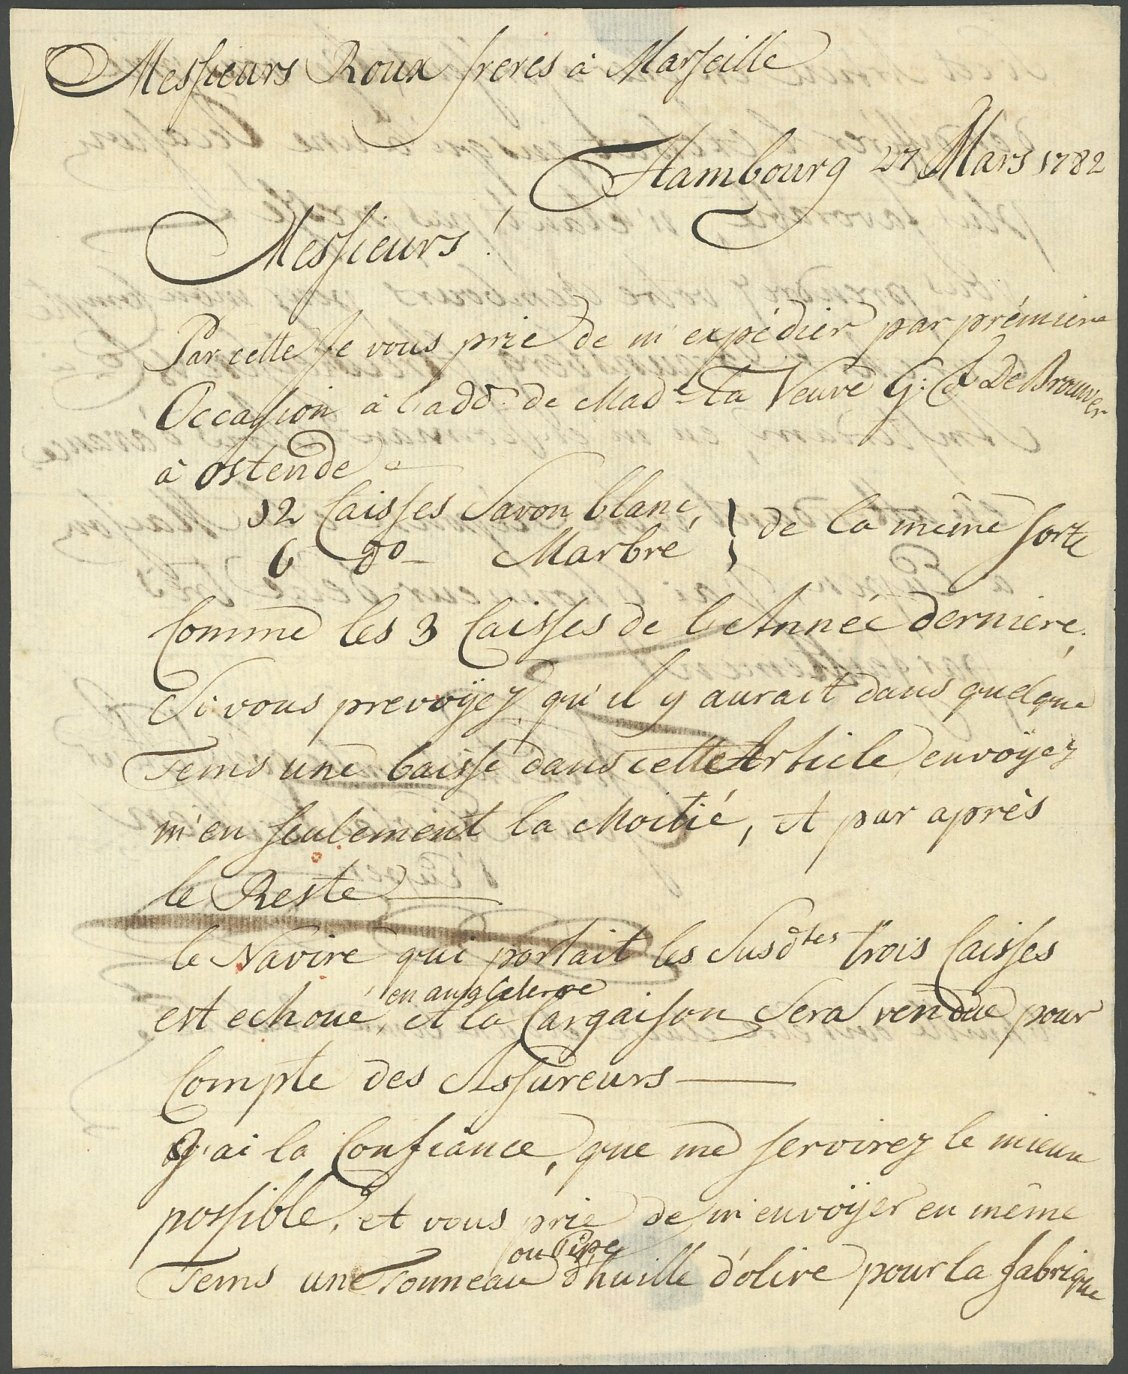 Messieurs Roux freres à Marseille
Hambourg 27 Mars 1782
Messieurs!
Par cette Je vous prie de m'expédier par prémiere
Occasion à l'add: de Mad.e La Veuve G: C De Brouwer
à Ostende
12 Caisses Savon blanc } de la même Sorte
6 do Marbré
Comme les 3 Caisses de l'Année derniere.
Si vous prevoÿez qu'il y aurait dans quelque
Tems une baisse dans cette Article envoÿez
m'en seulement la Moitié, et par après
le Reste
le Navire qui portait les Susdtes trois Caisses
en angleterre
est echoué, et la Cargaison Sera vendue pour
Compte des Assureurs
J'ai la Confiance, que me servirez le mieux
possible, et vous prie de m'envoÿer en même
ou Pipe
Tems une Tonneau d'huille d'olive pour la fabrique